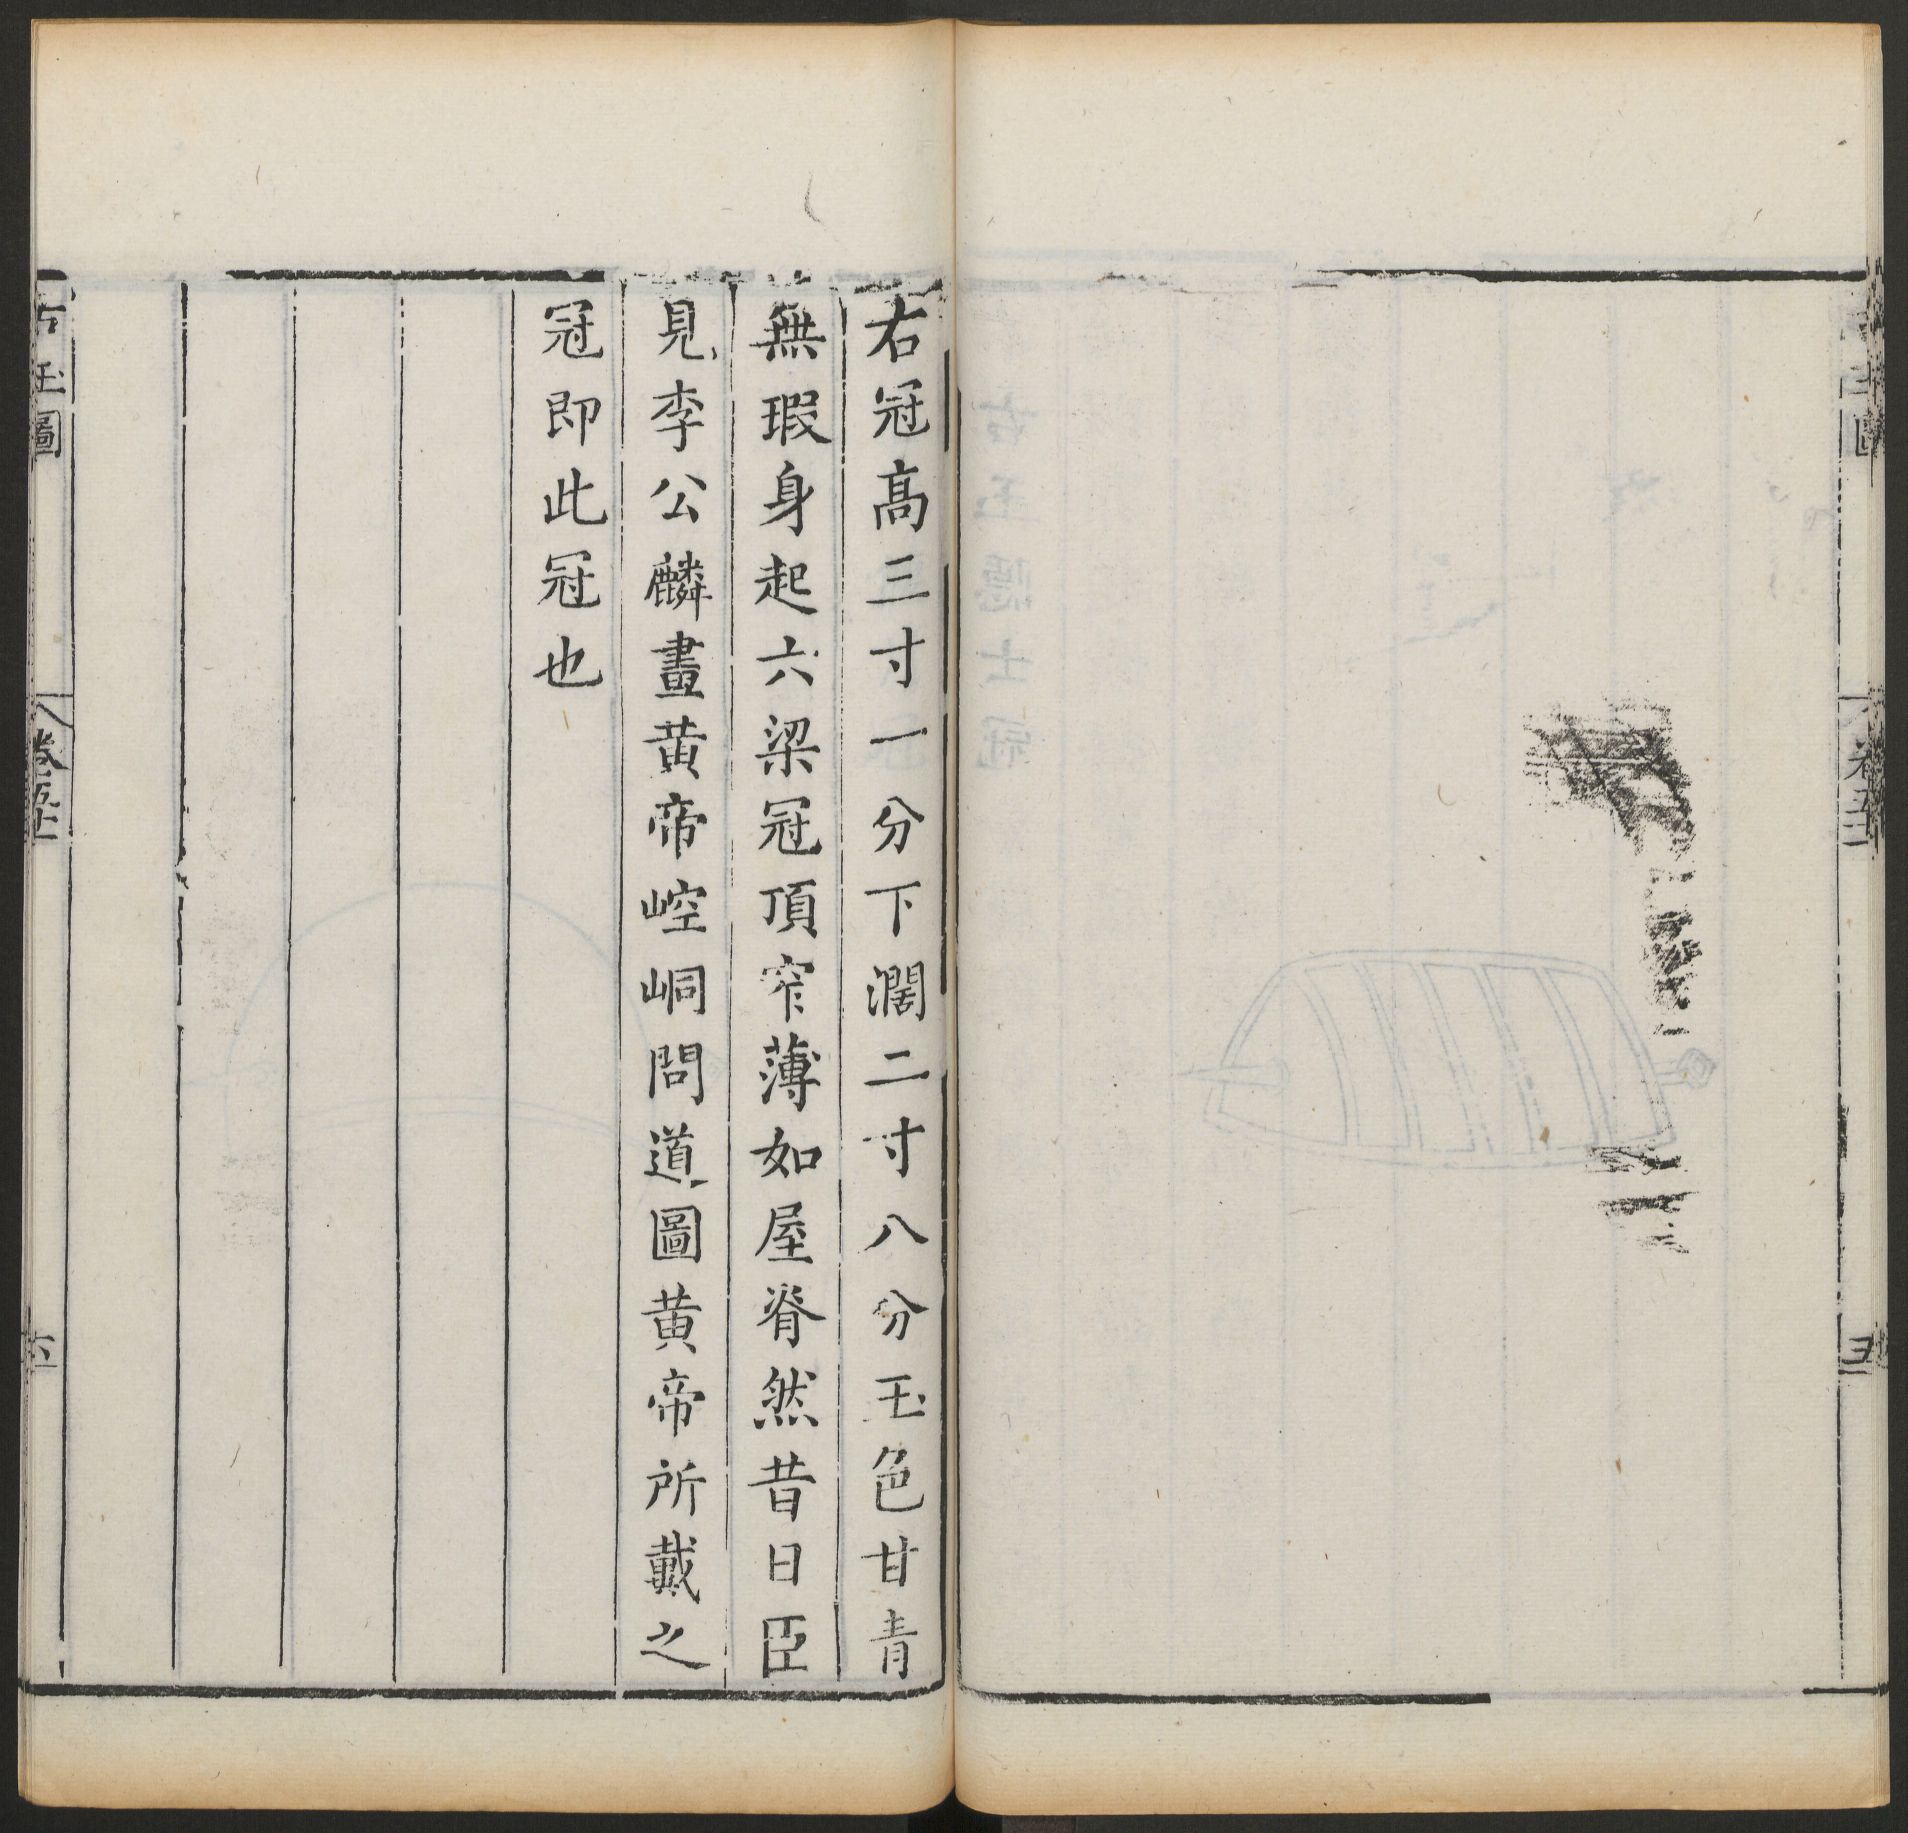 五
右冠高三寸一分下濶二寸八分玉色甘青
無瑕身起六梁冠頂窄薄如屋脊然昔日臣
見李公麟畫黄帝崆峒問道圖黄帝所戴之
冠即此冠也
古玉圖
卷五十
六